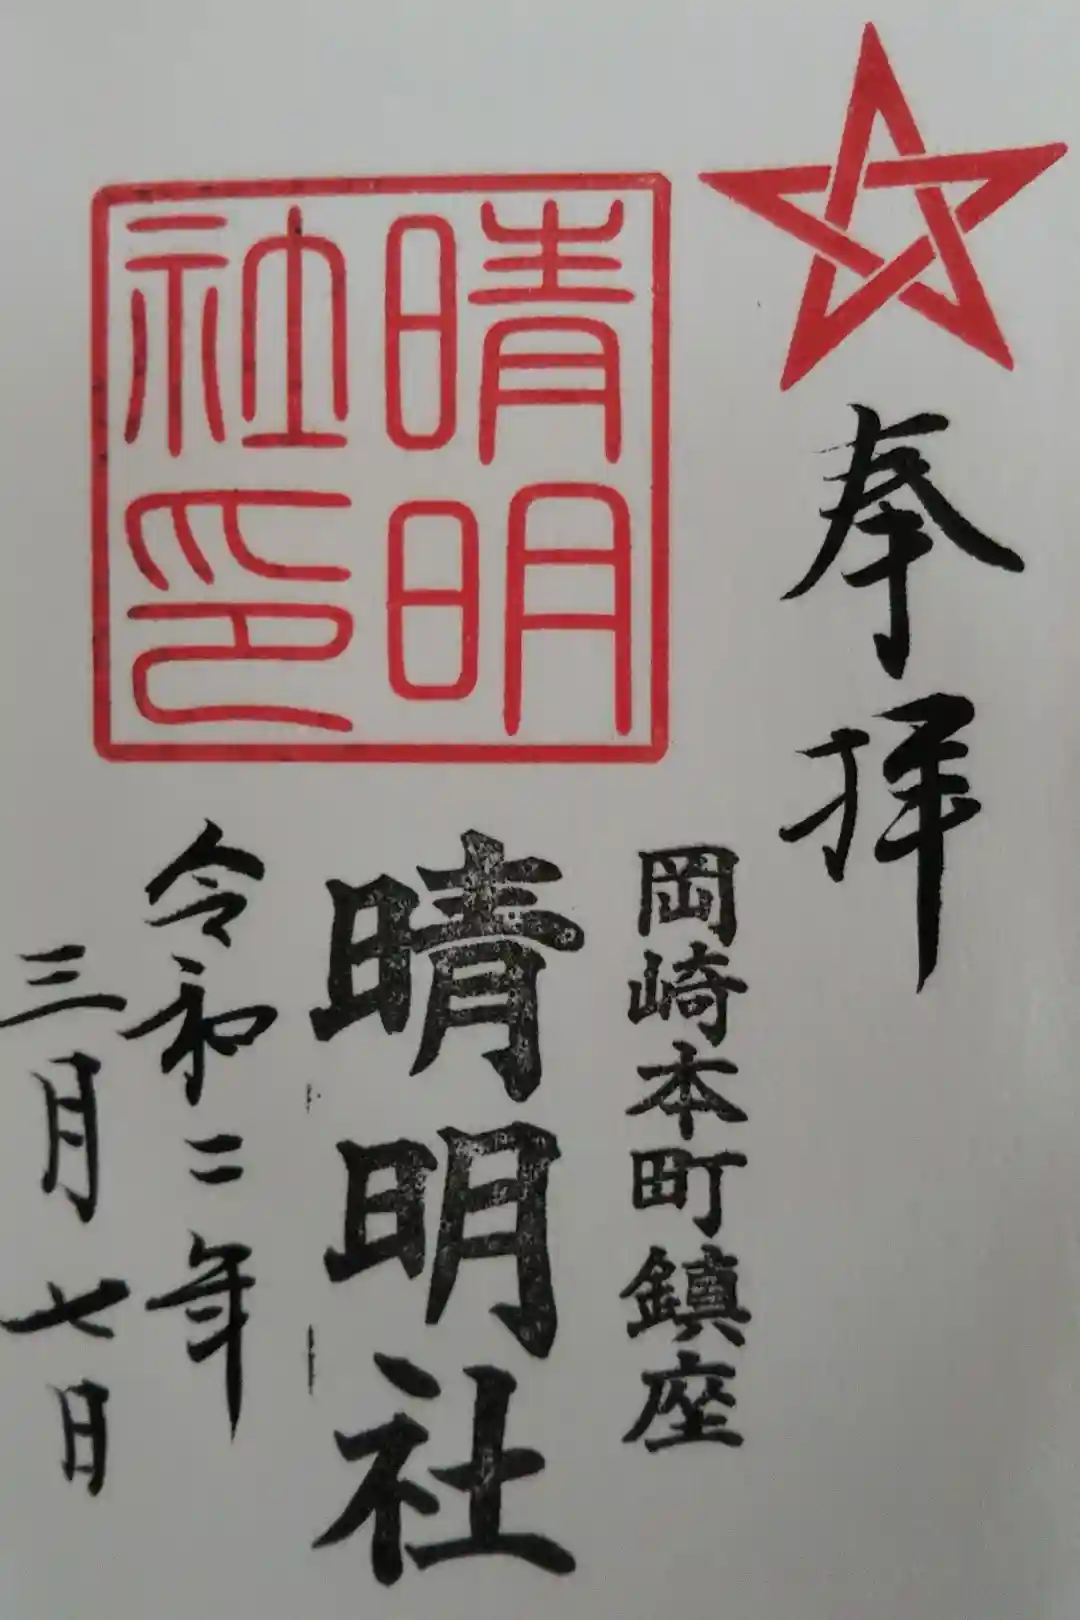 奉拝
岡崎本町鎮座
晴明社
晴明
社印
令和二年
三月七日